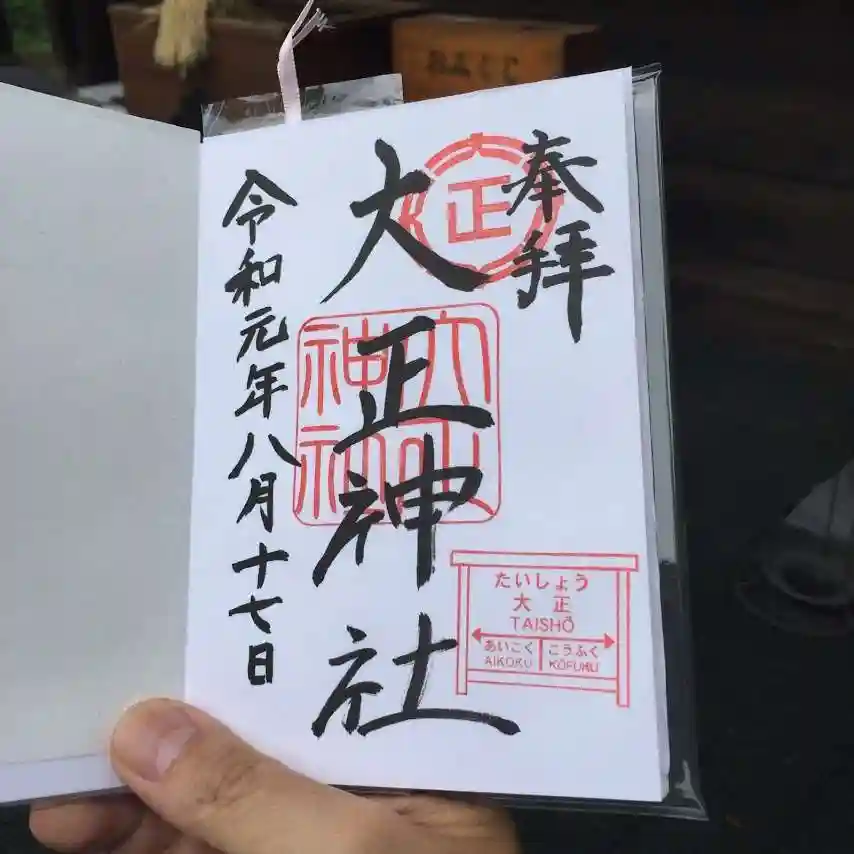 奉拝
正
大正神社
大正神社
令和元年八月十七日
たいしょう
大正
TAISHŌ
あいこく こうふく
AIKOKU KŌFUKU
おみくじ